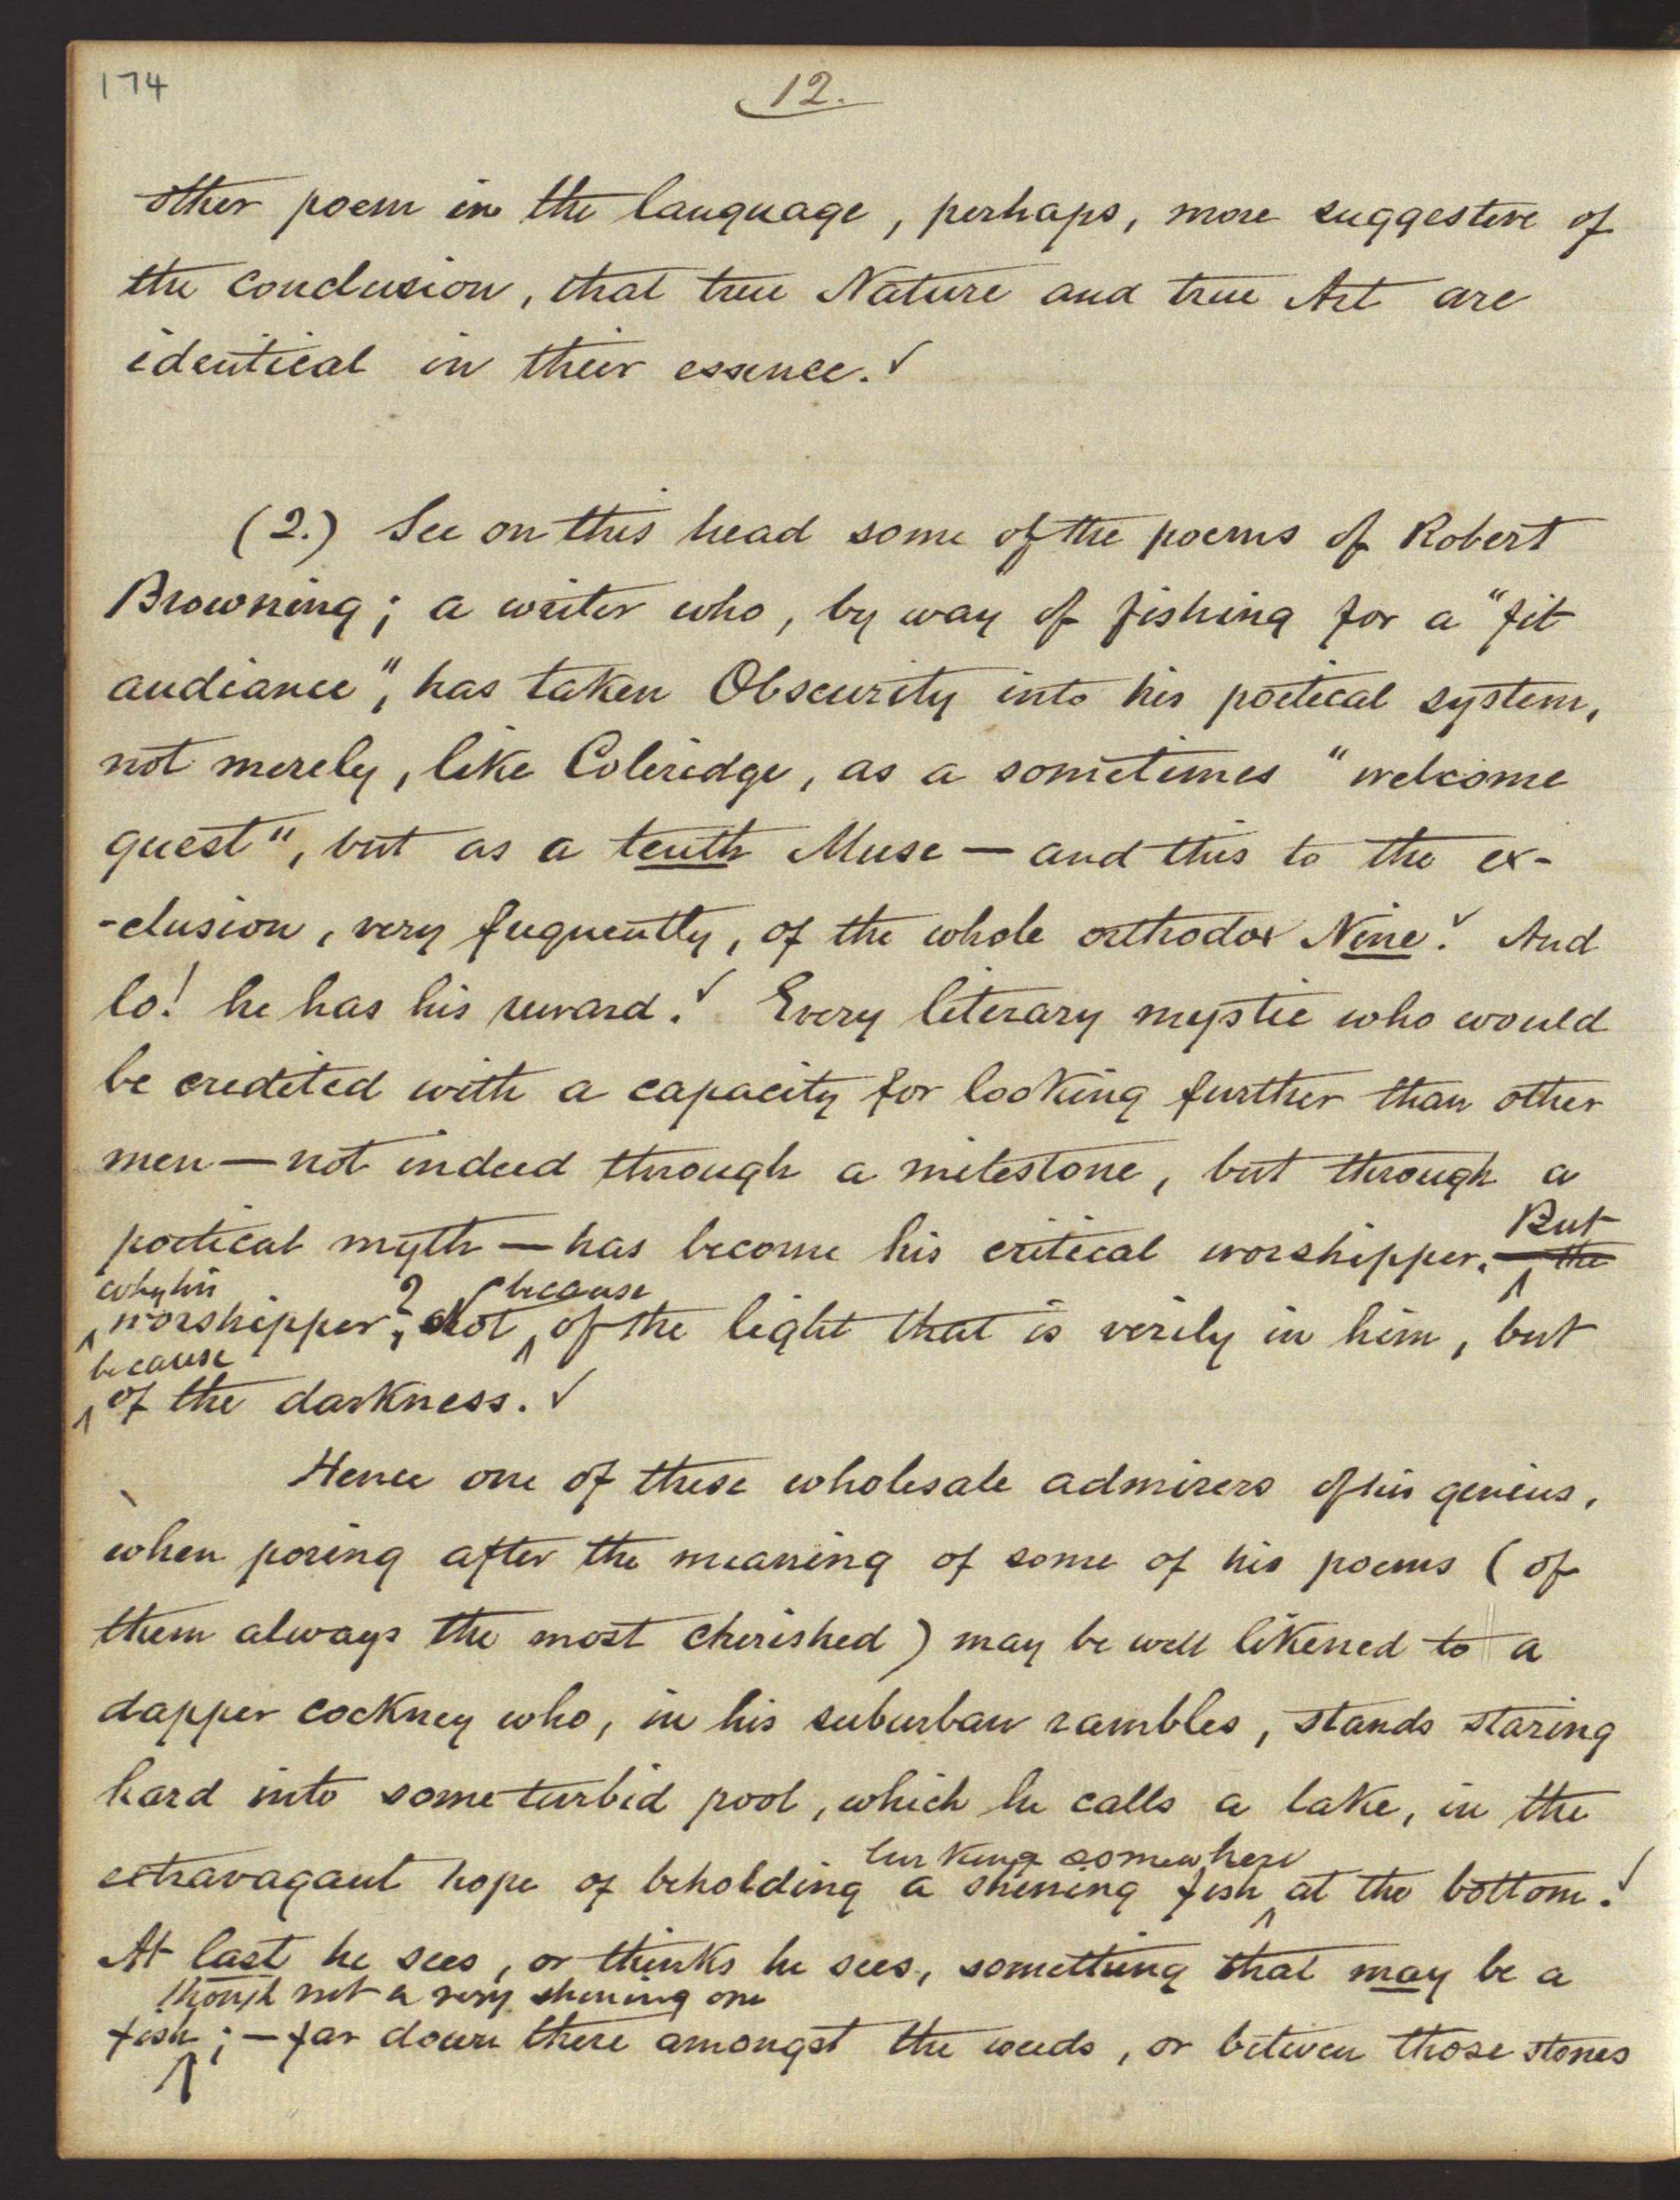 174
12.
other poem in the language, perhaps, more suggestive of
the conclusion, that true Nature and true Art are
identical in their essence. ✓
(2.) See on this head some of the poems of Robert
Browning; a writer who, by way of fishing for a "fit
audiance", has taken Obscurity into his poetical system,
not merely, like Coleridge, as a sometimes "welcome
guest", but as a tenth Muse — and this to the ex-
-clusion, very frequently, of the whole orthodox Nine. ✓ And
lo! he has his reward. ✓ Every literary mystic who would
be credited with a capacity for looking further than other
men — not indeed through a milestone, but through a
poetical myth — has become his critical worshipper. — the
But
why his
worshipper? Not of the light that is verily in him, but
because
because
of the darkness. ✓
Hence one of these wholesale admirers of his genius,
when poring after the meaning of some of his poems (of
them always the most cherished) may be well likened to a
dapper cockney who, in his suburban rambles, stands staring
hard into some turbid pool, which he calls a lake, in the
lurking somewhere
extravagant hope of beholding a shining fish at the bottom. ✓
At last he sees, or thinks he sees, something that may be a
though not a very shining one
fish; — far down there amongst the weeds, or between those stones